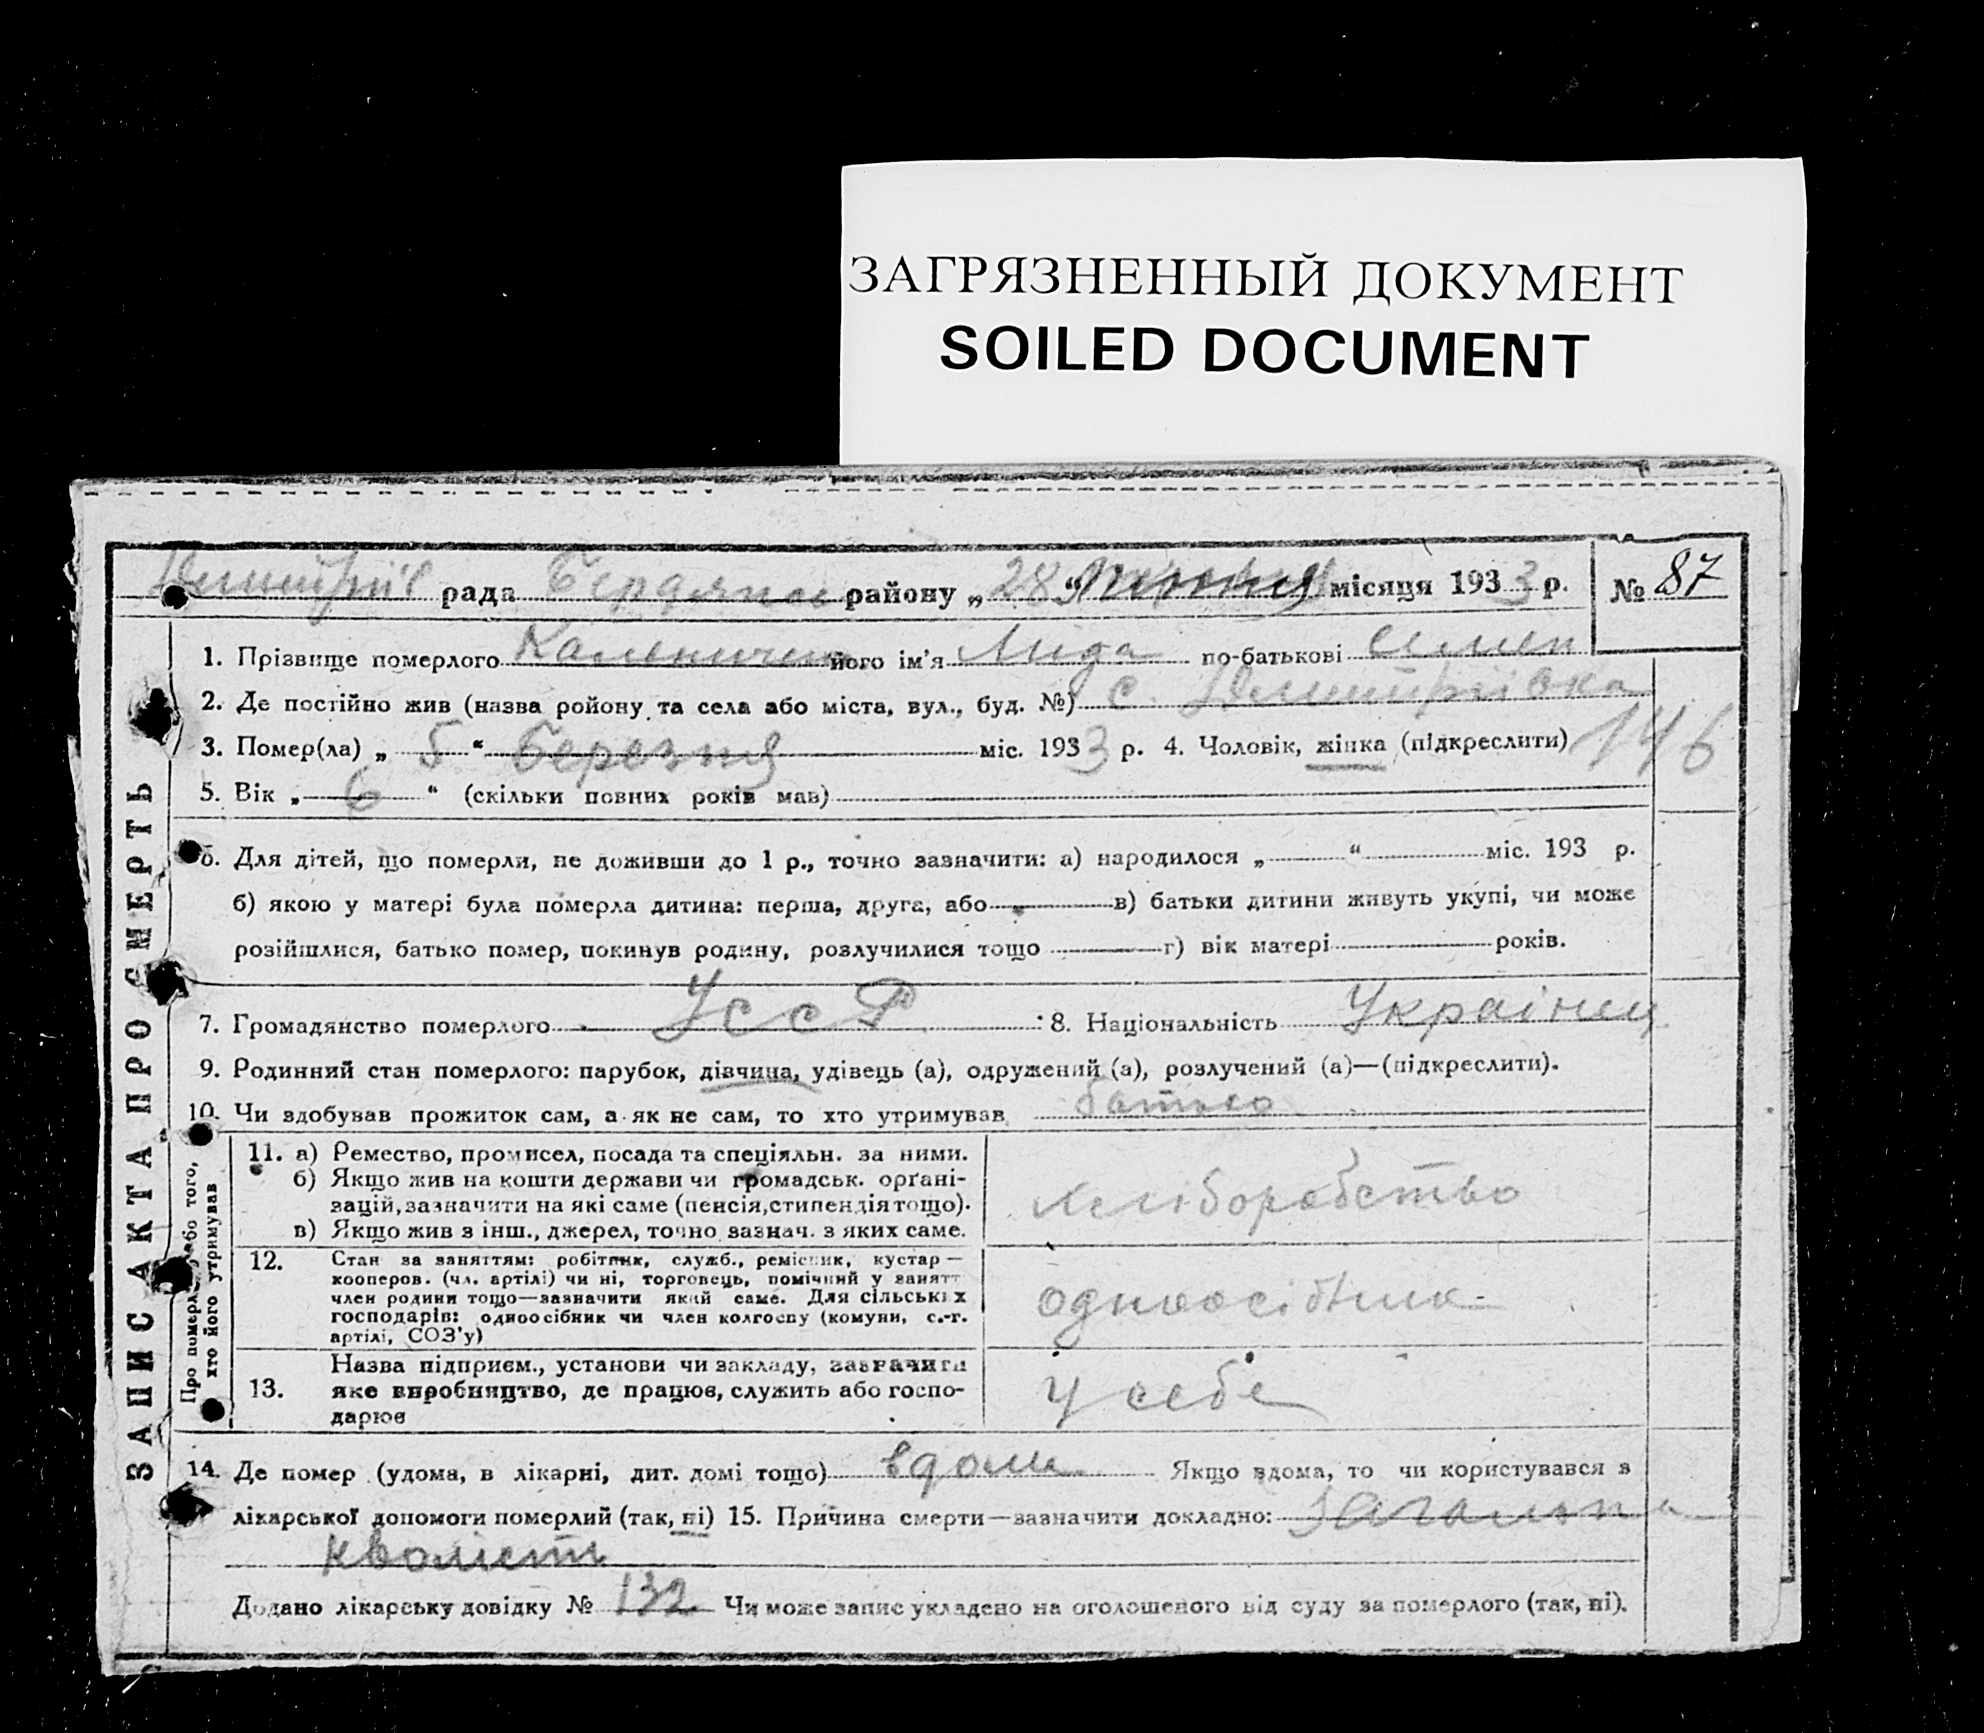 ЗАГРЯЗНЕННЫЙ ДОКУМЕНТ
SOILED DOCUMENT
рада Бердянськ району „28“ місяця 1933 р. № 87
1. Прізвище померлого Каленичен його ім'я Лида по-батькові Семен
2. Де постійно жив (назва ройону та села або міста, вул., буд. №) с. Дмитрівка
3. Помер(ла) „5“ Березня міс. 1933 р. 4. Чоловік, жінка (підкреслити) 146
5. Вік „6“ (скільки повних років мав)
6. Для дітей, що померли, не доживши до 1 р., точно зазначити: а) народилося „ “ міс. 193 р.
б) якою у матері була померла дитина: перша, друга, або в) батьки дитини живуть укупі, чи може
розійшлися, батько помер, покинув родину, розлучилися тощо г) вік матері років.
7. Громадянство померлого УССР 8. Національність Українец
9. Родинний стан померлого: парубок, дівчина, удівець (а), одружений (а), розлучений (а)—(підкреслити).
10. Чи здобував прожиток сам, а як не сам, то хто утримував батько
ЗАПИС АКТА ПРО СМЕРТЬ
Про померлого або того,
хто його утримував
11. а) Ремество, промисел, посада та спеціяльн. за ними.
б) Якщо жив на кошти держави чи громадськ. орґані-
зацій, зазначити на які саме (пенсія, стипендія тощо).
в) Якщо жив з інш., джерел, точно зазнач. з яких саме.
хліборобство
12. Стан за заняттям: робітник, служб., ремісник, кустар —
кооперов. (чл. артілі) чи ні, торговець, помічний у занятт
член родини тощо—зазначити який саме. Для сільських
господарів: одноосібник чи член колгоспу (комуни, с.-г.
артілі, СОЗ'у)
одноосібник
13. Назва підприєм., установи чи закладу, зазначити
яке виробництво, де працюв, служить або госпо-
дарюв
у себе
14. Де помер (удома, в лікарні, дит. домі тощо) вдома Якщо вдома, то чи користувався з
лікарської допомоги померлий (так, ні) 15. Причина смерти—зазначити докладно: Загальна
кволість
Додано лікарську довідку № 132 Чи може запис укладено на оголошеного від суду за померлого (так, ні).